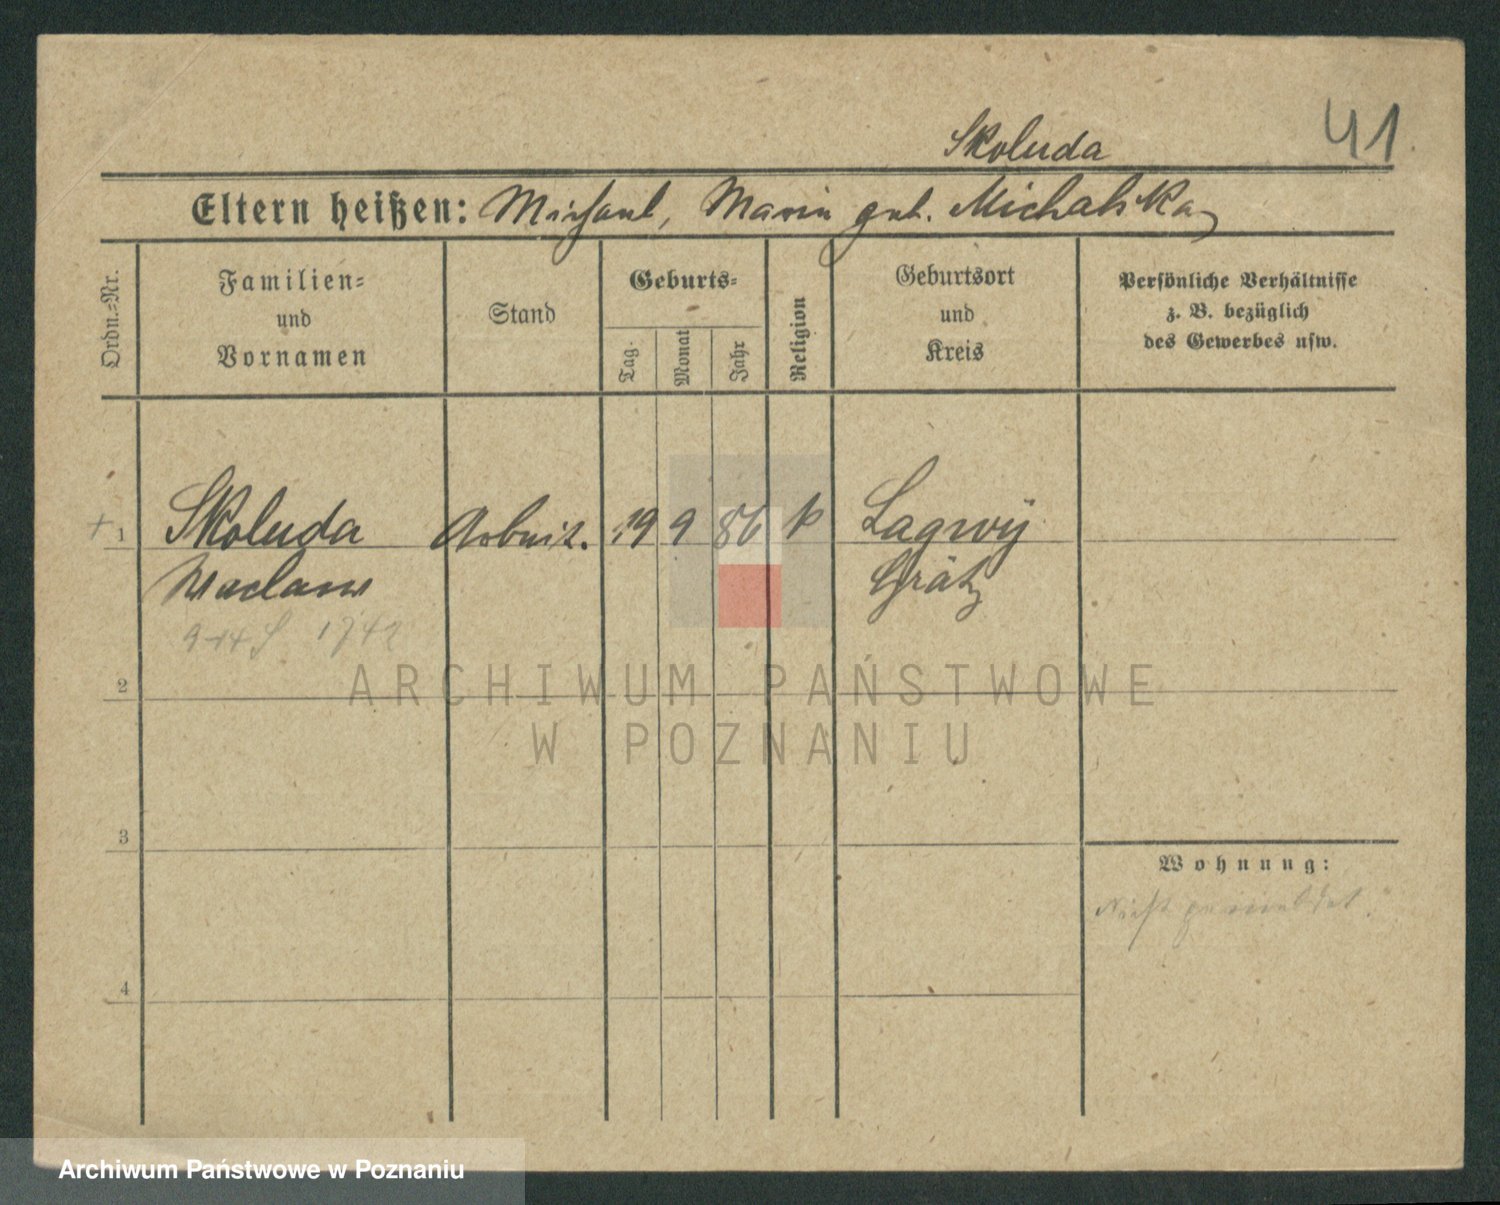 Skoluda
41
Eltern heißen: Michael, Maria geb. Michalska
Ordn.-Nr.
Familien-
und
Vornamen
Stand
Geburts-
Tag.
Monat
Jahr
Religion
Geburtsort
und
Kreis
Persönliche Verhältnisse
z. B. bezüglich
des Gewerbes usw.
+ 1 Skoluda Arbeit. 19 9 86 k Lagwÿ
Waclaw Grätz
1742
2
ARCHIWUM PAŃSTWOWE
W POZNANIU
3
Wohnung:
Nicht gemeldet
4
Archiwum Państwowe w Poznaniu